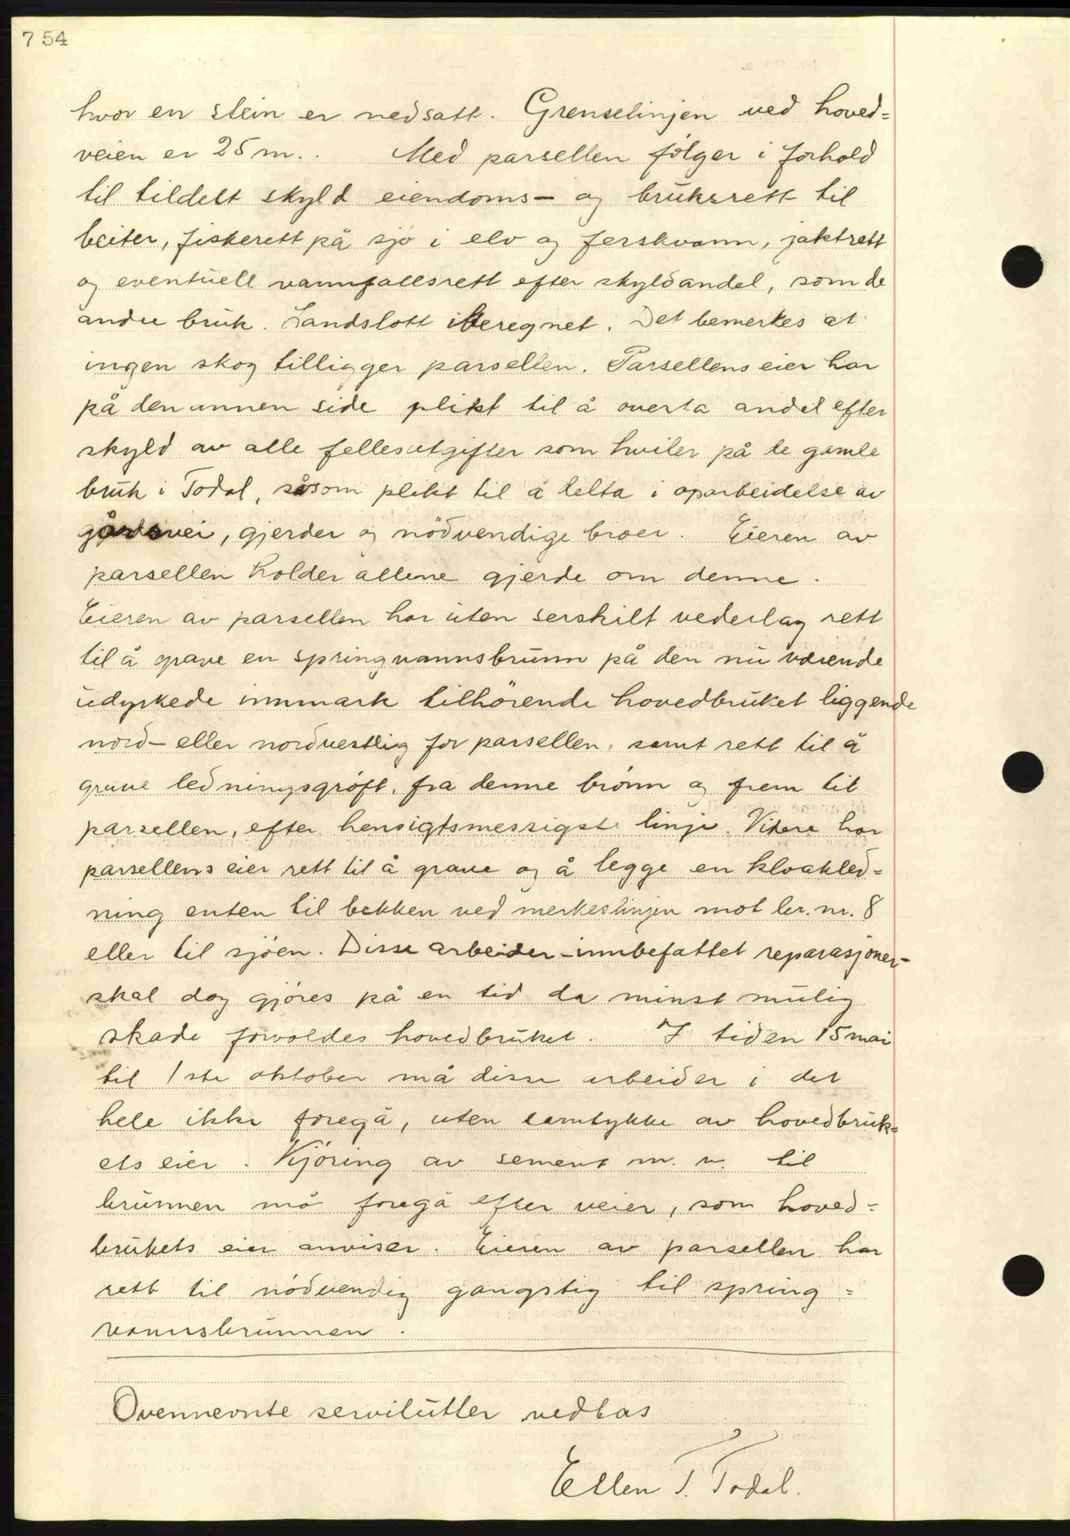 754
hvor en stein er nedsatt. Grenselinjen ved hoved=
veien er 25 m.. Med parsellen følger i forhold
til tildelt skyld eiendoms- og bruksrett til
beiter, fiskerett på sjø i elv og ferskvann, jaktrett
og eventuell vannfallsrett efter skyldandel, som de
andre bruk. Landslott iberegnet. Det bemerkes at
ingen skog tilligger parsellen. Parsellens eier har
på den annen side plikt til å overta andel efter
skyld av alle fellesutgifter som hviler på de gamle
bruk i Todal, såsom plikt til å delta i oparbeidelse av
gårdsvei, gjerder og nödvendige broer. Eieren av
parsellen holder allene gjerde om denne.
Eieren av parsellen har uten serskilt vederlag rett
til å grave en springvannsbrunn på den nu værende
udyrkede innmark tilhörende hovedbruket liggende
nord- eller nordvestlig for parsellen, samt rett til å
grave ledningsgröft, fra denne brönn og frem til
parsellen, efter hensigtsmessigste linje. Videre har
parsellens eier rett til å grave og å legge en kloakled=
ning enten til bekken ved merkeslinjen mot br. nr. 8
eller til sjöen. Disse arbeider - innbefattet reparasjoner -
skal dog gjöres på en tid da minst mulig
skade forvoldes hovedbruket. I tiden 15 mai
til 1ste oktober må disse arbeider i det
hele ikke foregå, uten samtykke av hovedbruk=
ets eier. Kjöring av sement m. v. til
brunnen må foregå efter veier, som hoved=
brukets eier anviser. Eieren av parsellen har
rett til nödvendig gangstig til spring=
vannsbrunnen.
Ovennevnte servitutter vedtas
Ellen T. Todal.